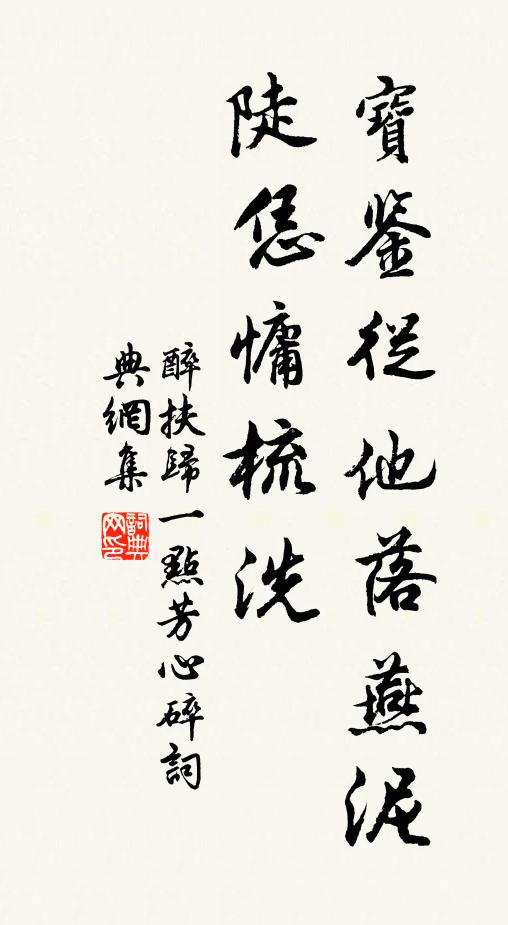 寶鉴從他落燕泥
陡恁慵梳洗
醉扶歸一點芳心碎詞
典網集
詞典
网印